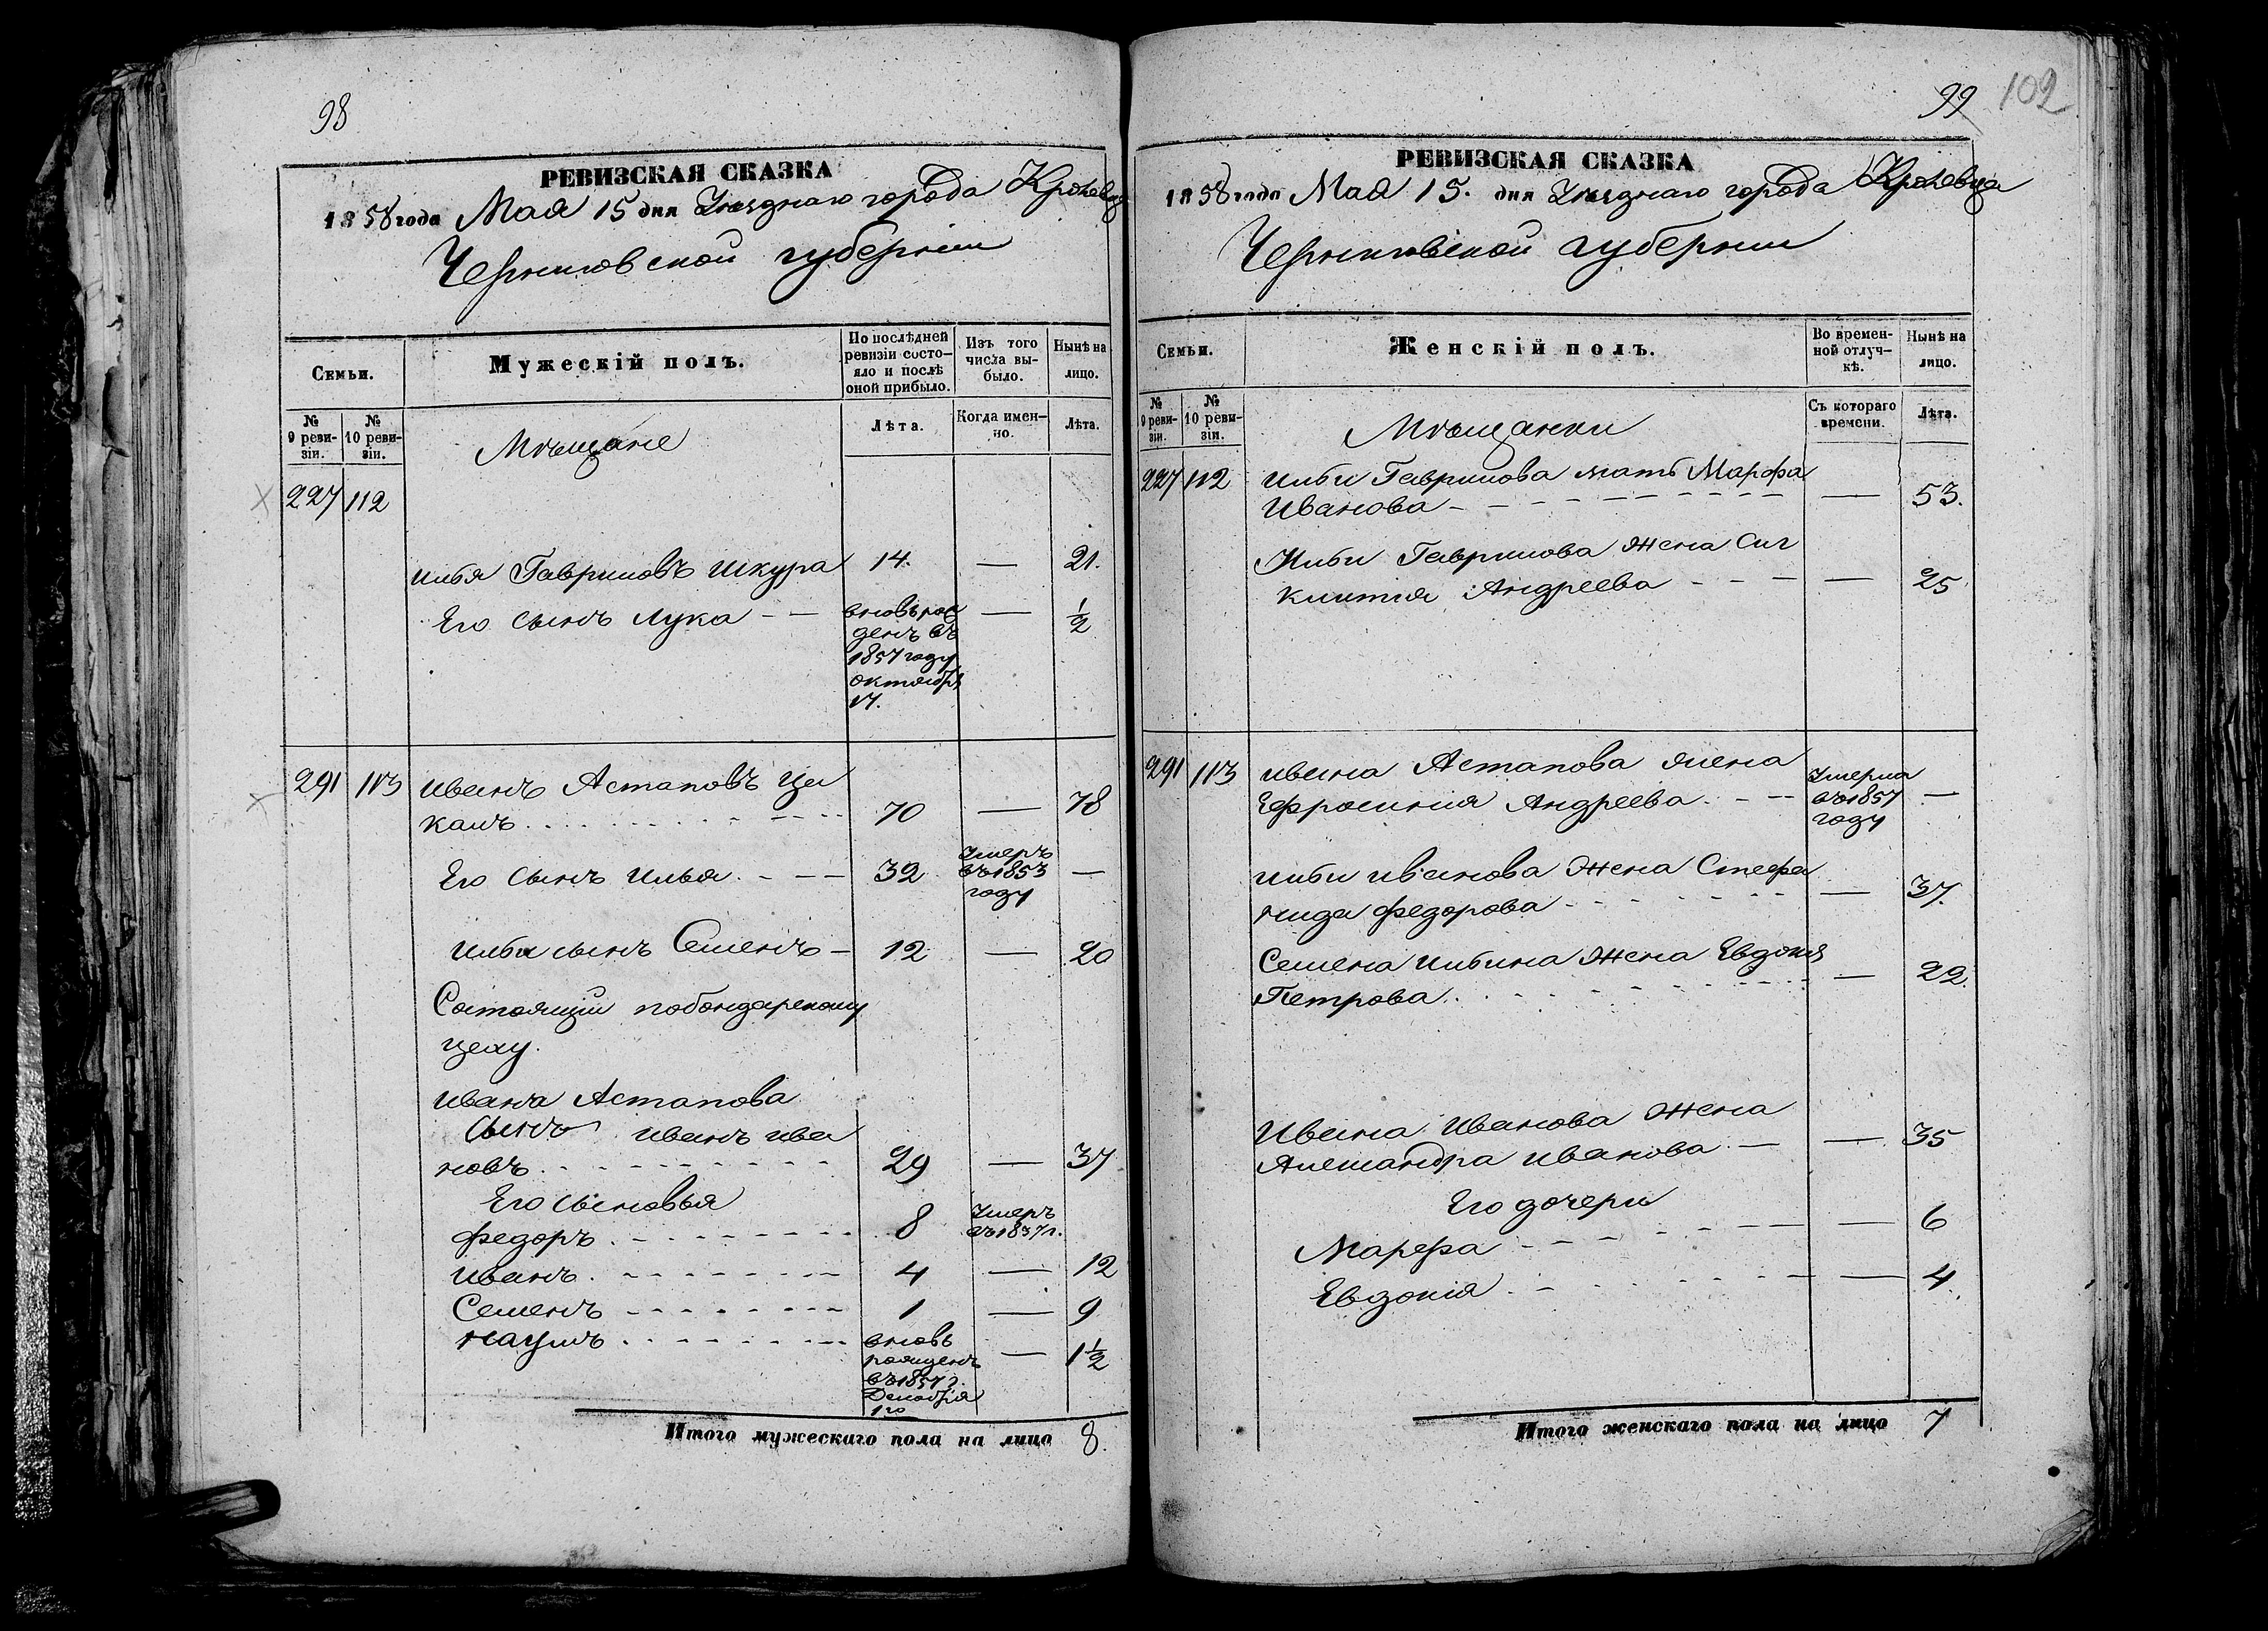 98
РЕВИЗСКАЯ СКАЗКА
1858 года Мая 15 дня Уѣзднаго города Кролевца
Черниговской губерніи
Семьи.
Мужескій полъ.
По послѣдней ревизіи состо-
яло и послѣ
оной прибыло.
Изъ того
числа вы-
было.
Нынѣ на
лицо.
№
9 реви-
зіи.
№
10 реви-
зіи.
Мѣщане
Лѣта.
Когда имен-
но.
Лѣта.
227 112
Илья Гавриловъ Шкура 14. — 21.
Его сынъ Лука — — вновь рож
денъ въ
1857 году
октября
17.
— ½
291 113 Иванъ Астаповъ Ца
канъ 70 — 78
Его сынъ Илья — — 32 Умеръ
въ 1853
году
—
Ильи сынъ Семенъ — 12 — 20
Состоящій по бондарскому
цеху.
Ивана Астапова
сынъ Иванъ Ива
новъ 29 — 37
Его сыновья
Федоръ 8 Умеръ
въ 1857 г.
Иванъ 4 — 12
Семенъ 1 — 9
Наумъ вновь
рожденъ
въ 1857 г.
Декабря
1го
— 1½
Итого мужескаго пола на лицо 8.
99 102
РЕВИЗСКАЯ СКАЗКА
1858 года Мая 15. дня Уѣзднаго города Кролевца
Черниговской губерніи
Семьи.
Женскій полъ.
Во времен-
ной отлуч-
кѣ.
Нынѣ на
лицо.
№
9 реви-
зіи.
№
10 реви-
зіи.
Мѣщанки
Съ котораго
времени.
Лѣта.
227 112 Ильи Гаврилова мать Марфа
Иванова — 53.
Ильи Гаврилова жена Сиг
клитія Андреева — 25
291 113 Ивана Астапова жена
Ефросинія Андреева — — Умерла
въ 1857
году
—
Ильи Иванова жена Стефа
нида Федорова — 37.
Семена Ильина жена Евдокія
Петрова — 22.
Ивана Иванова жена
Александра Иванова — — 35
Его дочери
Марфа — 6
Евдокія — 4.
Итого женскаго пола на лицо 7